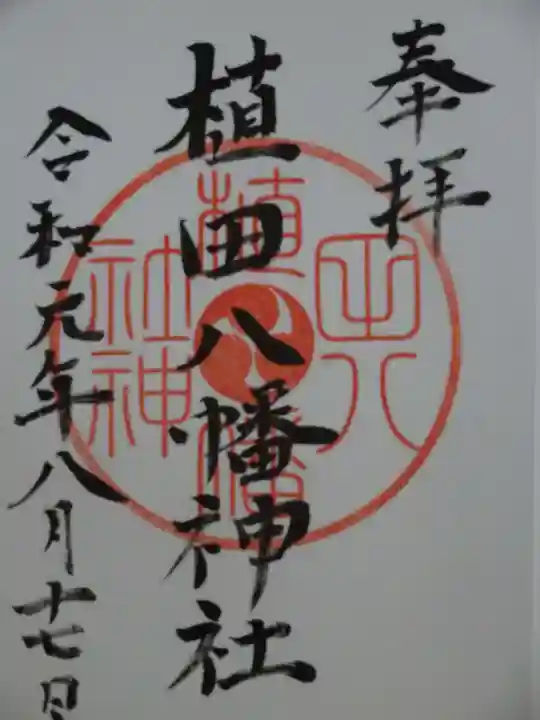 奉拝
植田八幡神社
令和元年八月十七日
植田八幡神社